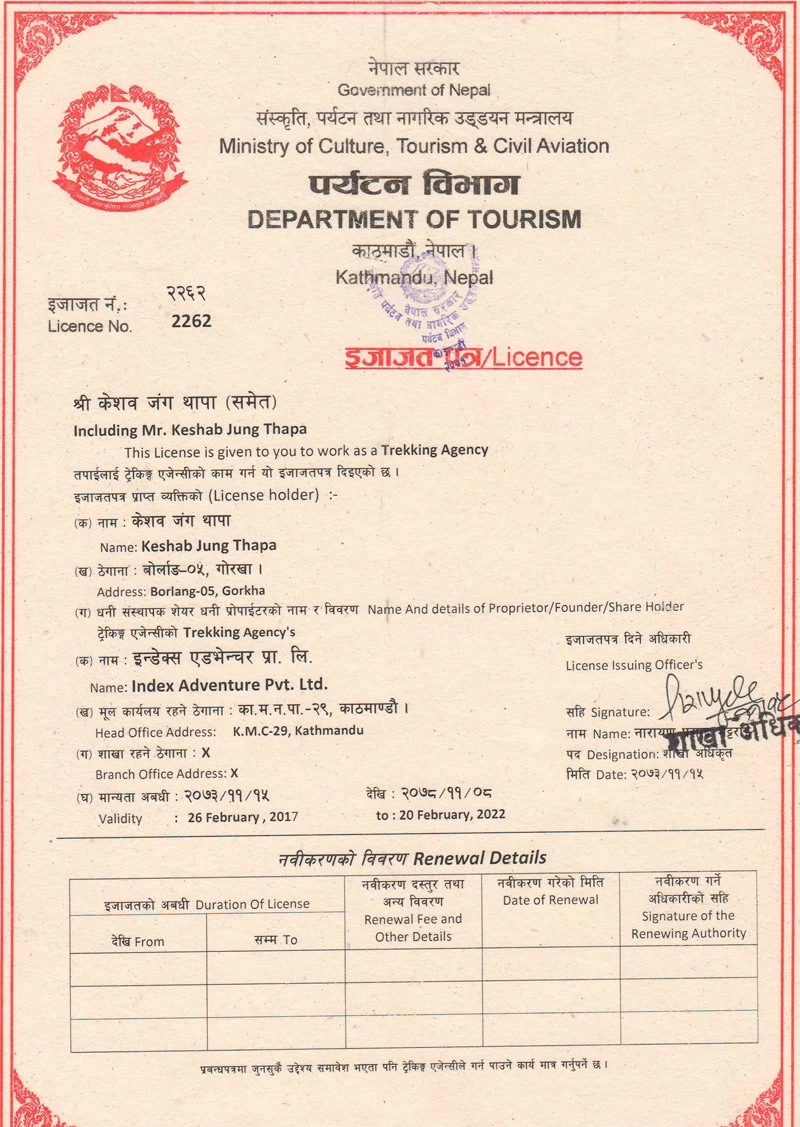 नेपाल सरकार
Government of Nepal
संस्कृति, पर्यटन तथा नागरिक उड्डयन मन्त्रालय
Ministry of Culture, Tourism & Civil Aviation
पर्यटन विभाग
DEPARTMENT OF TOURISM
काठमाडौं, नेपाल ।
Kathmandu, Nepal
इजाजत नं.: २२६२
Licence No. 2262
नेपाल सरकार
पर्यटन विभाग
इजाजत पत्र/Licence
श्री केशव जंग थापा (समेत)
Including Mr. Keshab Jung Thapa
This License is given to you to work as a Trekking Agency
तपाईलाई ट्रेकिङ्ग एजेन्सीको काम गर्न यो इजाजतपत्र दिइएको छ ।
इजाजतपत्र प्राप्त व्यक्तिको (License holder) :-
(क) नाम : केशव जंग थापा
Name: Keshab Jung Thapa
(ख) ठेगाना : बोर्लाङ-०५, गोरखा ।
Address: Borlang-05, Gorkha
(ग) धनी संस्थापक शेयर धनी प्रोपाईटरको नाम र विवरण Name And details of Proprietor/Founder/Share Holder
ट्रेकिङ्ग एजेन्सीको Trekking Agency's
(क) नाम : इन्डेक्स एडभेन्चर प्रा. लि.
Name: Index Adventure Pvt. Ltd.
(ख) मूल कार्यलय रहने ठेगाना : का.म.न.पा.-२९, काठमाण्डौ ।
Head Office Address: K.M.C-29, Kathmandu
(ग) शाखा रहने ठेगाना : X
Branch Office Address: X
(घ) मान्यता अबधी : २०७३/११/१५ देखि : २०७८/११/०८
Validity : 26 February , 2017 to : 20 February, 2022
इजाजतपत्र दिने अधिकारी
License Issuing Officer's
सहि Signature:
नाम Name: नारायण
शाखा अधिकृ
पद Designation: शाखा अधिकृत
मिति Date: २०७३/११/१५
नवीकरणको विवरण Renewal Details
इजाजतको अबधी Duration Of License
देखि From
सम्म To
नवीकरण दस्तुर तथा
अन्य विवरण
Renewal Fee and
Other Details
नवीकरण गरेको मिति
Date of Renewal
नवीकरण गर्ने
अधिकारीको सहि
Signature of the
Renewing Authority
प्रबन्धपत्रमा जुनसुकै उद्देश्य समावेश भएता पनि ट्रेकिङ्ग एजेन्सीले गर्न पाउने कार्य मात्र गर्नुपर्ने छ ।